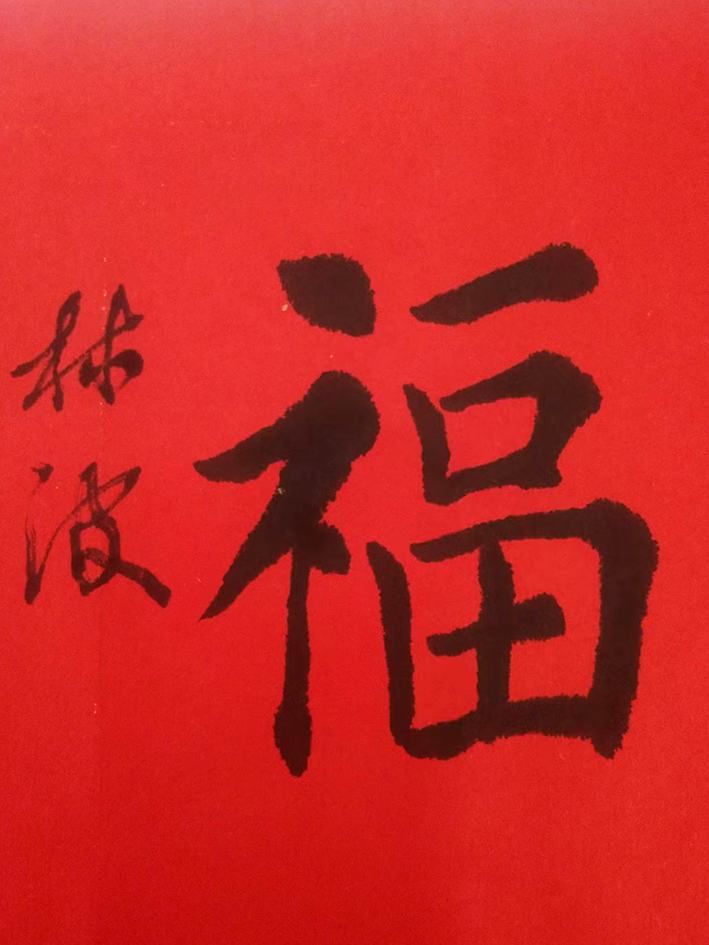 福
林波